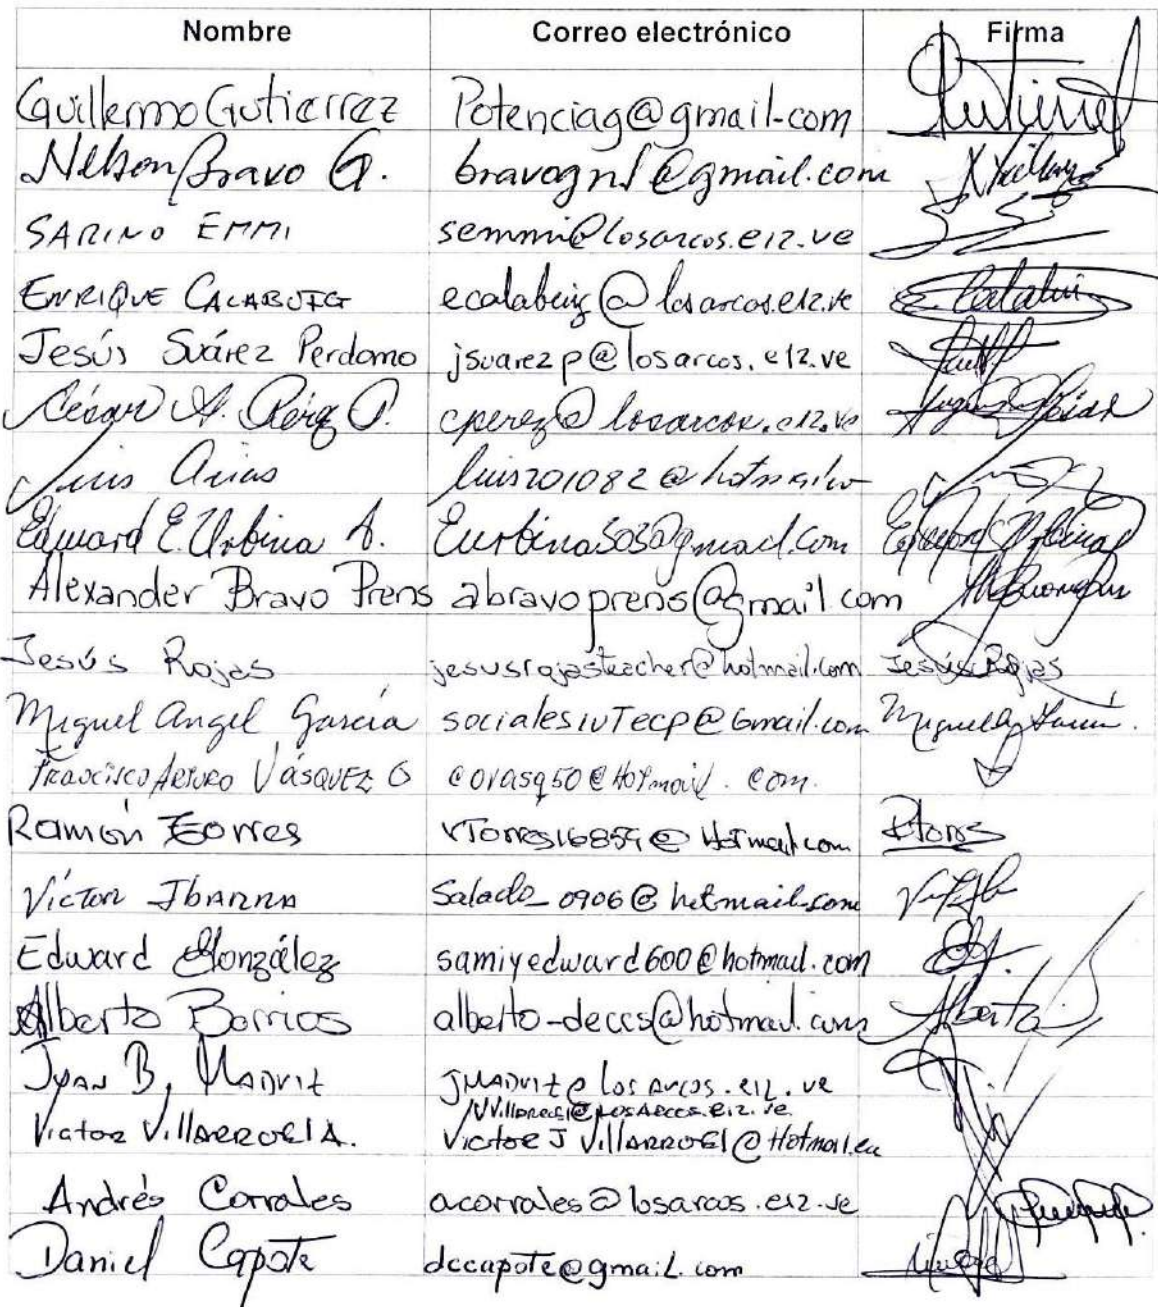 Nombre Correo electrónico Firma
Guillermo Gutierrez Potenciag@gmail.com Gutierrez
Nelson Bravo G. bravogns@gmail.com
SARINO EMMI semmi@losarcos.e12.ve
ENRIQUE CALABUIG ecalabuig@losarcos.e12.ve E. Calabuig
Jesús Suárez Perdomo jsuarezp@losarcos.e12.ve
César A. Pérez P. cperez@losarcos.e12.ve
Luis Arias luis201082@hotmail.
Edward E. Urbina A. Eurbina503@gmail.com Edward Urbina
Alexander Bravo Prens abravoprens@gmail.com
Jesús Rojas jesusrojasteacher@hotmail.com Jesús Rojas
Miguel Angel García socialesivTecp@Gmail.com Miguel A García
FRANCISCO ARTURO VÁSQUEZ G covasq50@Hotmail.com.
Ramón Torres rTorres16859@Hotmail.com RTorres
Victor IBARRA Salado_0906@hotmail.com
Edward González samiyedward600@hotmail.com
Alberto Barrios alberto-deccs@hotmail.com Alberto
JUAN B. MADRIZ JMADRIZ@losarcos.e12.ve
VVillarroel@LOSARCOS.e12.ve
Victor VILLARROEL A. VictorJVILLARROEL@Hotmail.com
Andrés Corrales acorrales@losarcos.e12.ve
Daniel Capote dccapote@gmail.com